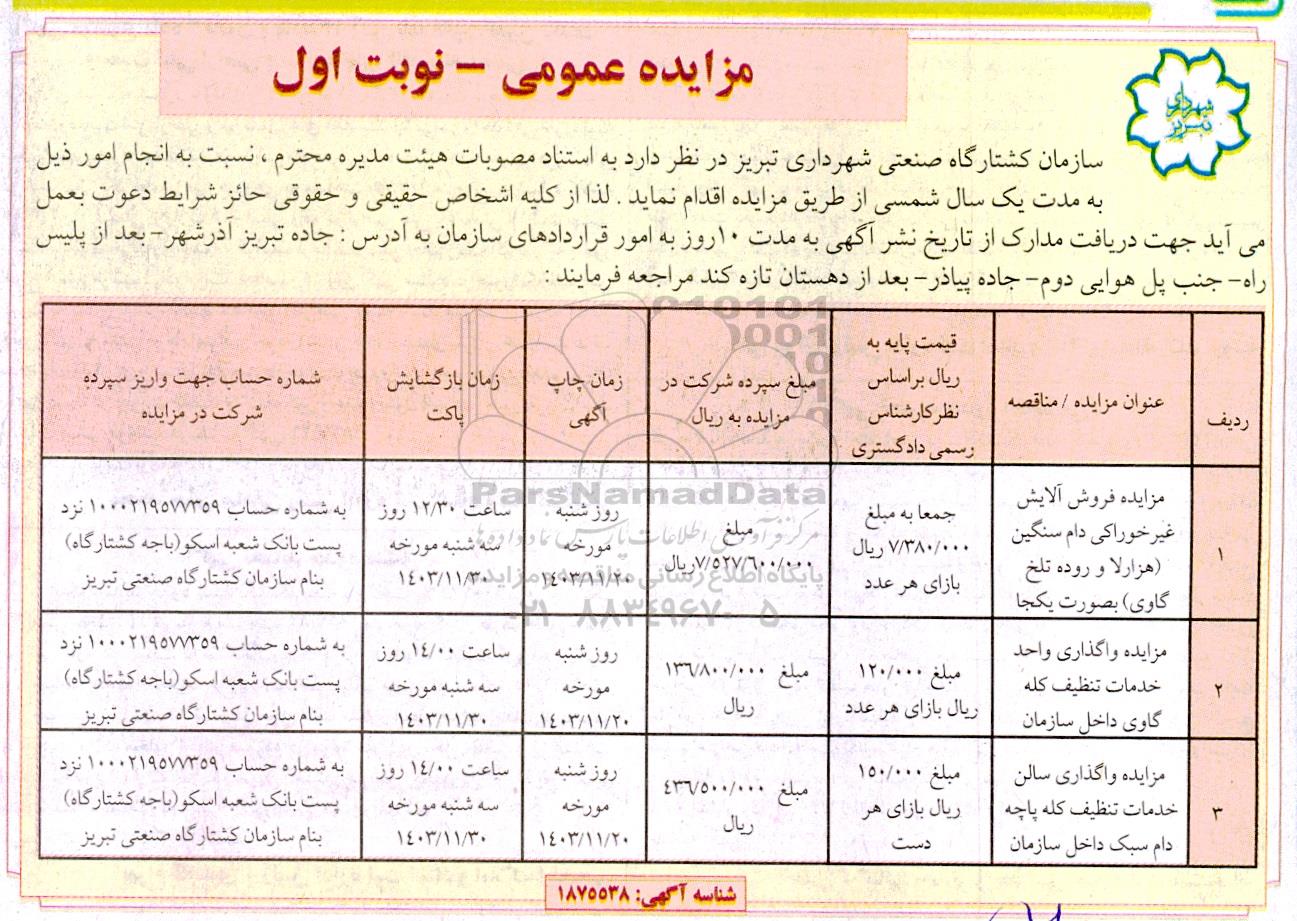 مزایده عمومی - نوبت اول
شهرداری
تبریز
سازمان کشتارگاه صنعتی شهرداری تبریز در نظر دارد به استناد مصوبات هیئت مدیره محترم ، نسبت به انجام امور ذیل
به مدت یک سال شمسی از طریق مزایده اقدام نماید . لذا از کلیه اشخاص حقیقی و حقوقی حائز شرایط دعوت بعمل
می آید جهت دریافت مدارک از تاریخ نشر آگهی به مدت ۱۰روز به امور قراردادهای سازمان به آدرس : جاده تبریز آذرشهر- بعد از پلیس
راه- جنب پل هوایی دوم- جاده پیاذر- بعد از دهستان تازه کند مراجعه فرمایند :
ردیف
عنوان مزایده / مناقصه
قیمت پایه به
ریال براساس
نظرکارشناس
رسمی دادگستری
مبلغ سپرده شرکت در
مزایده به ریال
زمان چاپ
آگهی
زمان بازگشایش
پاکت
شماره حساب جهت واریز سپرده
شرکت در مزایده
۱
مزایده فروش آلایش
غیرخوراکی دام سنگین
(هزارلا و روده تلخ
گاوی) بصورت یکجا
جمعا به مبلغ
۷/۳۸۰/۰۰۰ ریال
بازای هر عدد
مبلغ
۷/۵۲۷/۶۰۰/۰۰۰ریال
روز شنبه
مورخه
۱۴۰۳/۱۱/۲۰
ساعت ۱۲/۳۰ روز
سه شنبه مورخه
۱۴۰۳/۱۱/۳۰
به شماره حساب ۱۰۰۰۲۱۹۵۷۷۳۵۹ نزد
پست بانک شعبه اسکو(باجه کشتارگاه)
بنام سازمان کشتارگاه صنعتی تبریز
۲
مزایده واگذاری واحد
خدمات تنظیف کله
گاوی داخل سازمان
مبلغ ۱۲۰/۰۰۰
ریال بازای هر عدد
مبلغ ۱۳۶/۸۰۰/۰۰۰
ریال
روز شنبه
مورخه
۱۴۰۳/۱۱/۲۰
ساعت ۱۴/۰۰ روز
سه شنبه مورخه
۱۴۰۳/۱۱/۳۰
به شماره حساب ۱۰۰۰۲۱۹۵۷۷۳۵۹ نزد
پست بانک شعبه اسکو(باجه کشتارگاه)
بنام سازمان کشتارگاه صنعتی تبریز
۳
مزایده واگذاری سالن
خدمات تنظیف کله پاچه
دام سبک داخل سازمان
مبلغ ۱۵۰/۰۰۰
ریال بازای هر
دست
مبلغ ۴۳۶/۵۰۰/۰۰۰
ریال
روز شنبه
مورخه
۱۴۰۳/۱۱/۲۰
ساعت ۱۴/۰۰ روز
سه شنبه مورخه
۱۴۰۳/۱۱/۳۰
به شماره حساب ۱۰۰۰۲۱۹۵۷۷۳۵۹ نزد
پست بانک شعبه اسکو(باجه کشتارگاه)
بنام سازمان کشتارگاه صنعتی تبریز
ParsNamadData
مرکز فرآوری اطلاعات پارس نماد داده ها
پایگاه اطلاع رسانی مناقصه و مزایده
۰۲۱-۸۸۳۴۹۶۷۰-۵
شناسه آگهی: ۱۸۷۵۵۳۸